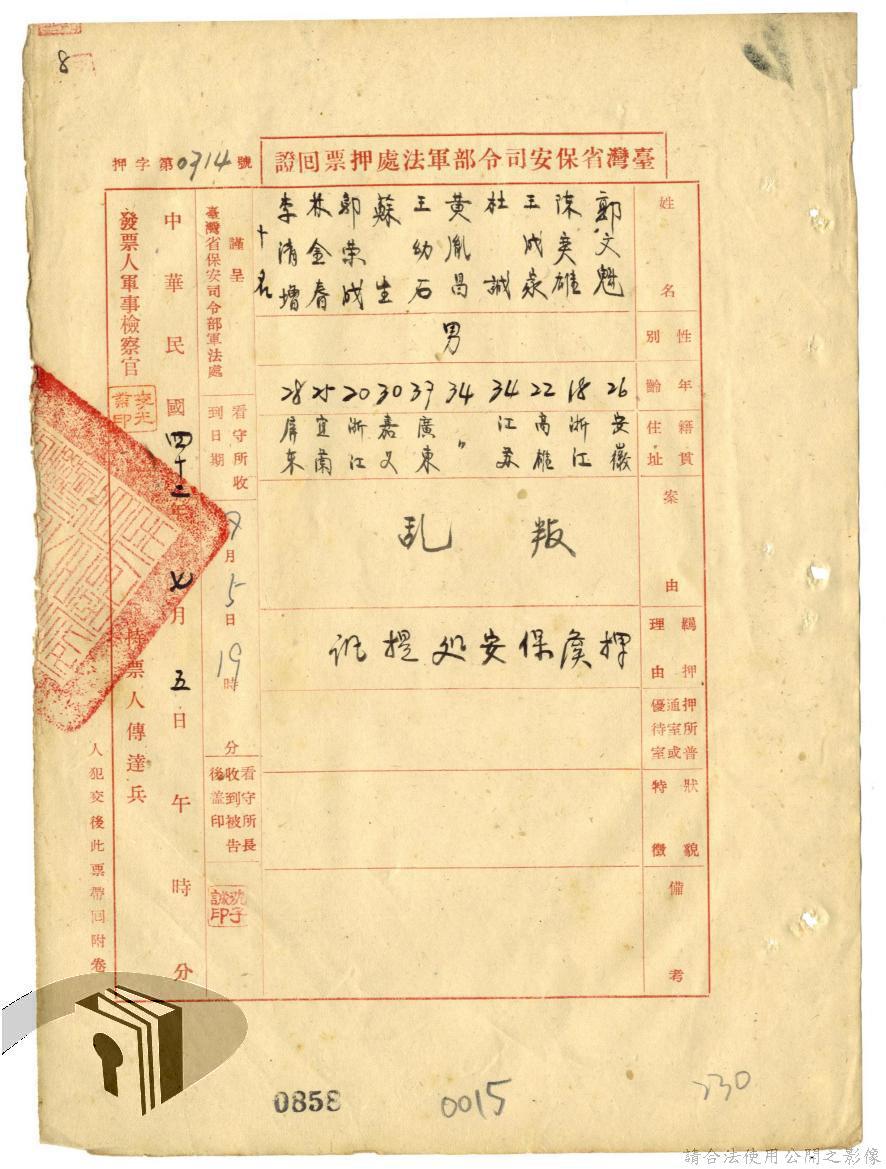 8
臺灣省保安司令部軍法處押票回證
押字第0714號
姓名
郭文魁
陳奕雄
王成家
杜誠
黃胤昌
王幼石
蘇生
郭荣成
林金春
李清增
十名
性別
男
年齡
26
18
22
34
34
37
30
20
25
28
籍貫住址
安徽
浙江
高雄
江苏
〃
廣東
嘉义
浙江
宜南
屏东
案由
叛乱
羈押理由
押候保安处提訊
押所普通室或優待室
特徵狀貌
備考
謹呈
臺灣省保安司令部軍法處
看守所收到日期
7月5日19時分
看守所長收到被告後蓋印
中華民國四十三年七月五日午時分
發票人軍事檢察官
持票人傳達兵
人犯交後此票帶回附卷
0858
0015
230
請合法使用公開之影像